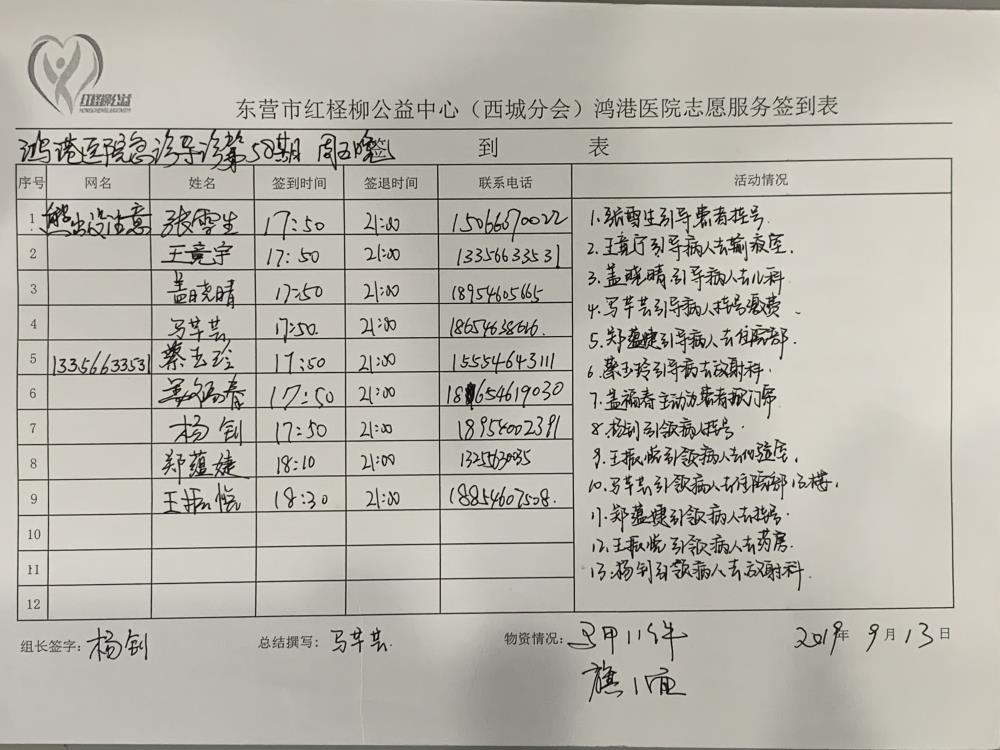 红柽柳公益
东营市红柽柳公益中心（西城分会）鸿港医院志愿服务签到表
鸿港医院急诊导诊第58期 周五晚 签 到 表
序号 网名 姓名 签到时间 签退时间 联系电话 活动情况
1 熊出没注意 张雪生 17:50 21:00 15066670022
2 王竟宇 17:50 21:00 13356633531
3 盖晓晴 17:50 21:00 18954605665
4 马芊芸 17:50. 21:00 18654638616.
5 13356633531 蔡玉玲 17:50 21:00 15554643111
6 盖福春 17:50 21:00 18654619030
7 杨钊 17:50 21:00 18954002391
8 郑蕴婕 18:10 21:00 1325630035
9 王振悦 18:30 21:00 18854607508.
10
11
12
1.张雪生引导患者挂号
2.王竟宇引导病人去输液室.
3.盖晓晴引导病人去儿科
4.马芊芸引导病人挂号缴费.
5.郑蕴婕引导病人去住院部.
6.蔡玉玲引导病去放射科.
7.盖福春主动为患者掀门帘
8.杨钊引领病人挂号
9.王振悦引领病人去化验室.
10.马芊芸引领病人去住院部13楼.
11.郑蕴婕引领病人去挂号.
12.王振悦引领病人去药房.
13.杨钊引领病人去放射科.
组长签字: 杨钊 总结撰写: 马芊芸. 物资情况: 马甲11件 2019年 9月13日
旗1面